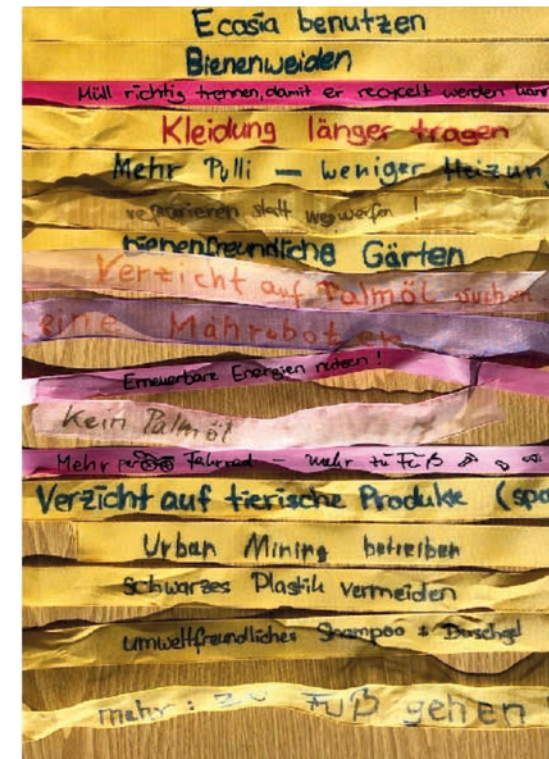 Ecosia benutzen
Bienenweiden
Müll richtig trennen, damit er recycelt werden kann
Kleidung länger tragen
Mehr Pulli – weniger Heizun
reparieren statt wegwerfen!
bienenfreundliche Gärten
Verzicht auf Palmöl
eine Mähroboter
Erneuerbare Energien nutzen!
Kein Palmöl
Mehr per Fahrrad – mehr zu Fuß
Verzicht auf tierische Produkte (spa
Urban Mining betreiben
schwarzes Plastik vermeiden
umweltfreundliches Shampoo + Duschgel
mehr: zu Fuß gehen